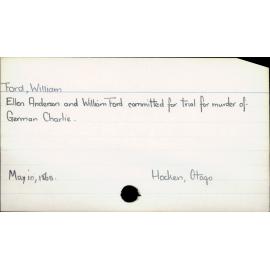 Ford, William
Ellen Anderson and William Ford committed for trial for murder of
German Charlie.
May 10, 1866.
Hocken, Otago